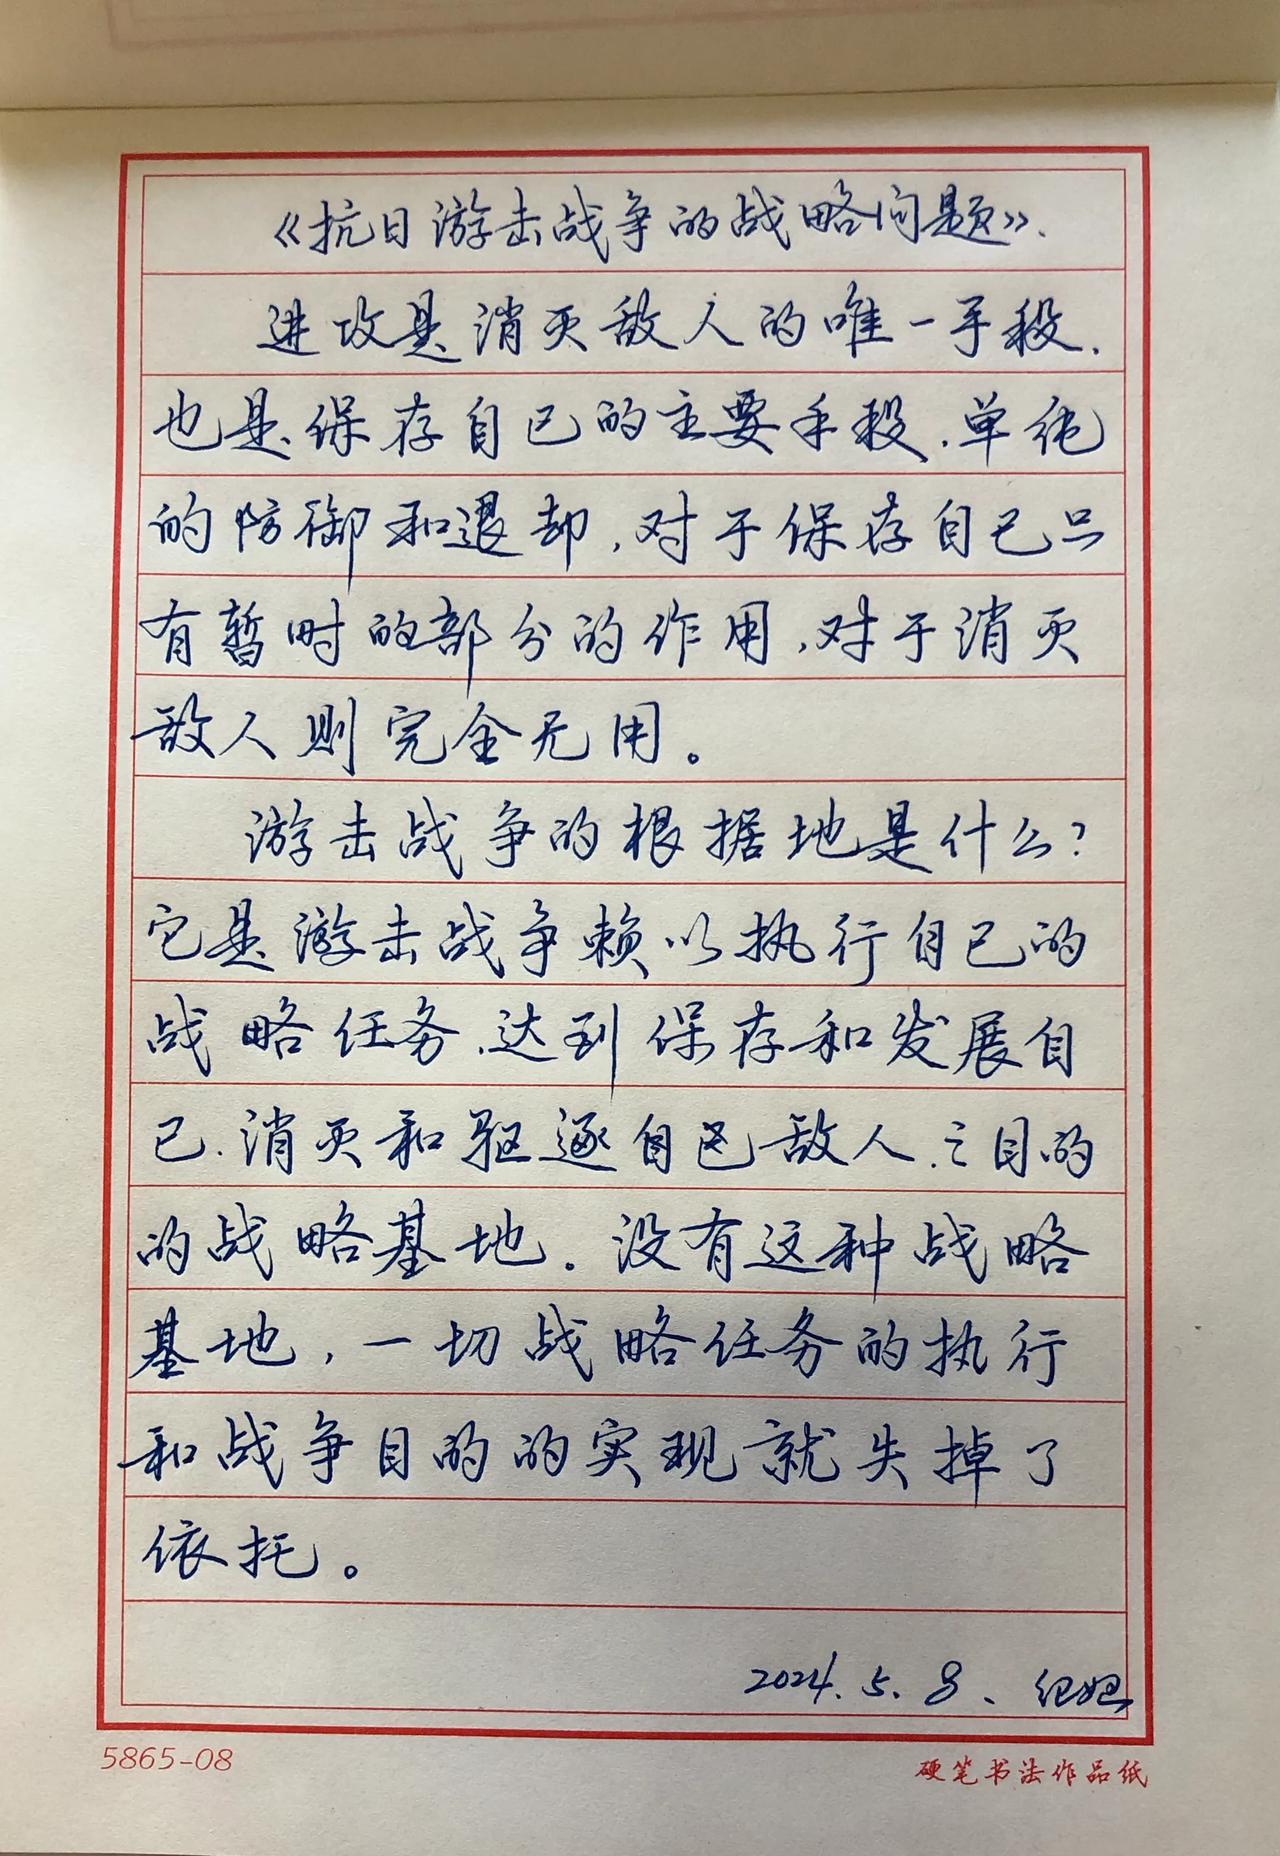 《抗日游击战争的战略问题》.
进攻是消灭敌人的唯一手段.
也是保存自己的主要手段.单纯
的防御和退却,对于保存自己只
有暂时的部分的作用,对于消灭
敌人则完全无用。
游击战争的根据地是什么?
它是游击战争赖以执行自己的
战略任务.达到保存和发展自
己.消灭和驱逐自己敌人.之目的
的战略基地。没有这种战略
基地,一切战略任务的执行
和战争目的的实现就失掉了
依托。
2024.5.8、
5865-08
硬笔书法作品纸